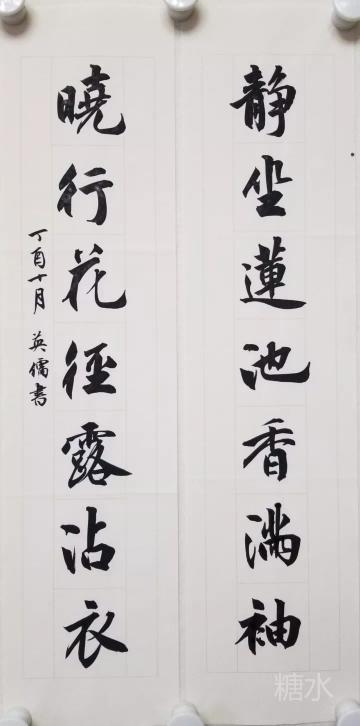 静坐蓮池香满袖
曉行花徑露沾衣
丁酉十月 英儒書
糖水